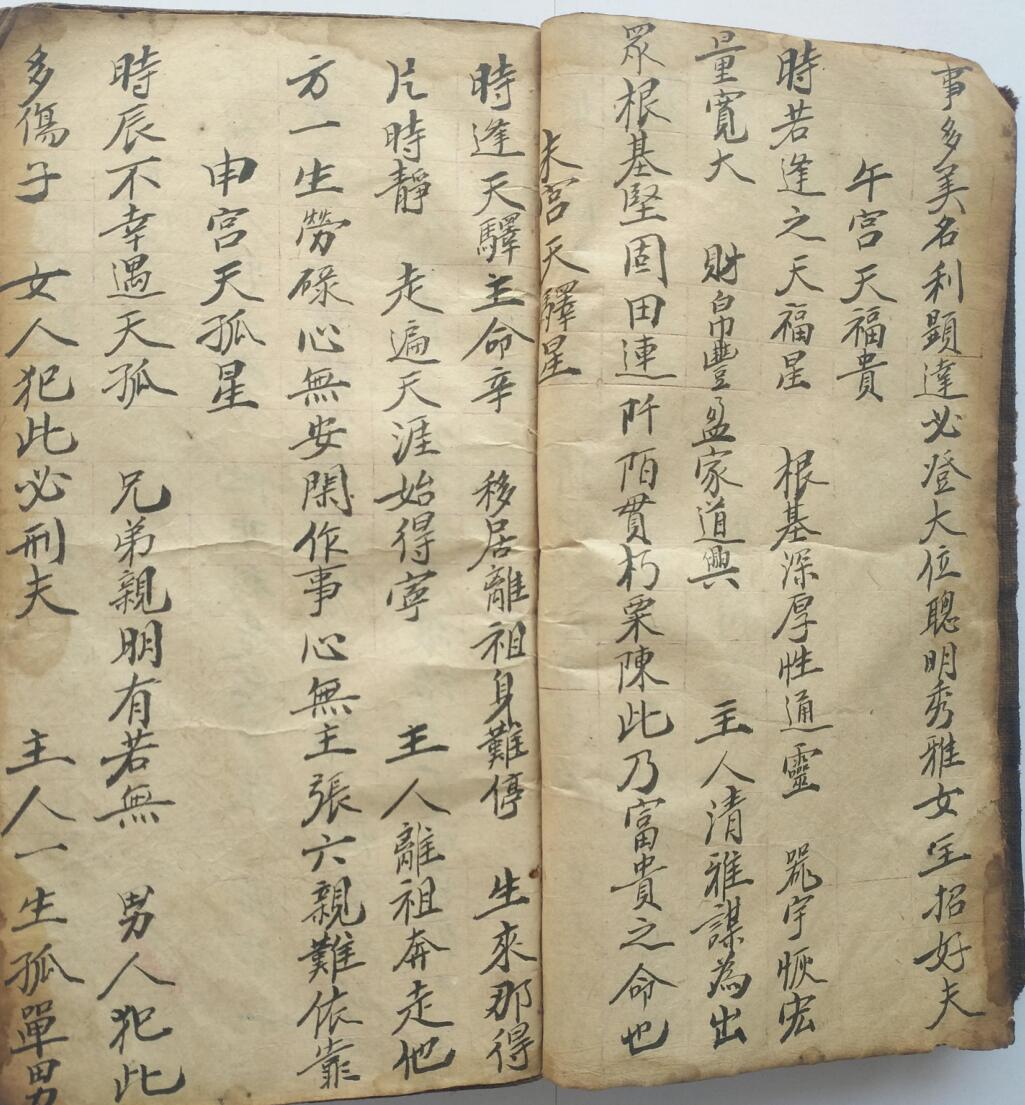 事多美名利顯達必登大位聰明秀雅女主招好夫
午宮天福貴
時若逢之天福星 根基深厚性通靈 器宇恢宏
量寬大 財帛豐盈家道興 主人清雅謀為出
眾根基堅固田連阡陌貫朽粟陳此乃富貴之命也
未宮天驛星
時逢天驛主命辛 移居離祖身難停 生來那得
片時靜 走遍天涯始得寧 主人離祖奔走他
方一生勞碌心無安閑作事心無主張六親難依靠
申宮天孤星
時辰不幸遇天孤 兄弟親朋有若無 男人犯此
多傷子 女人犯此必刑夫 主人一生孤單男